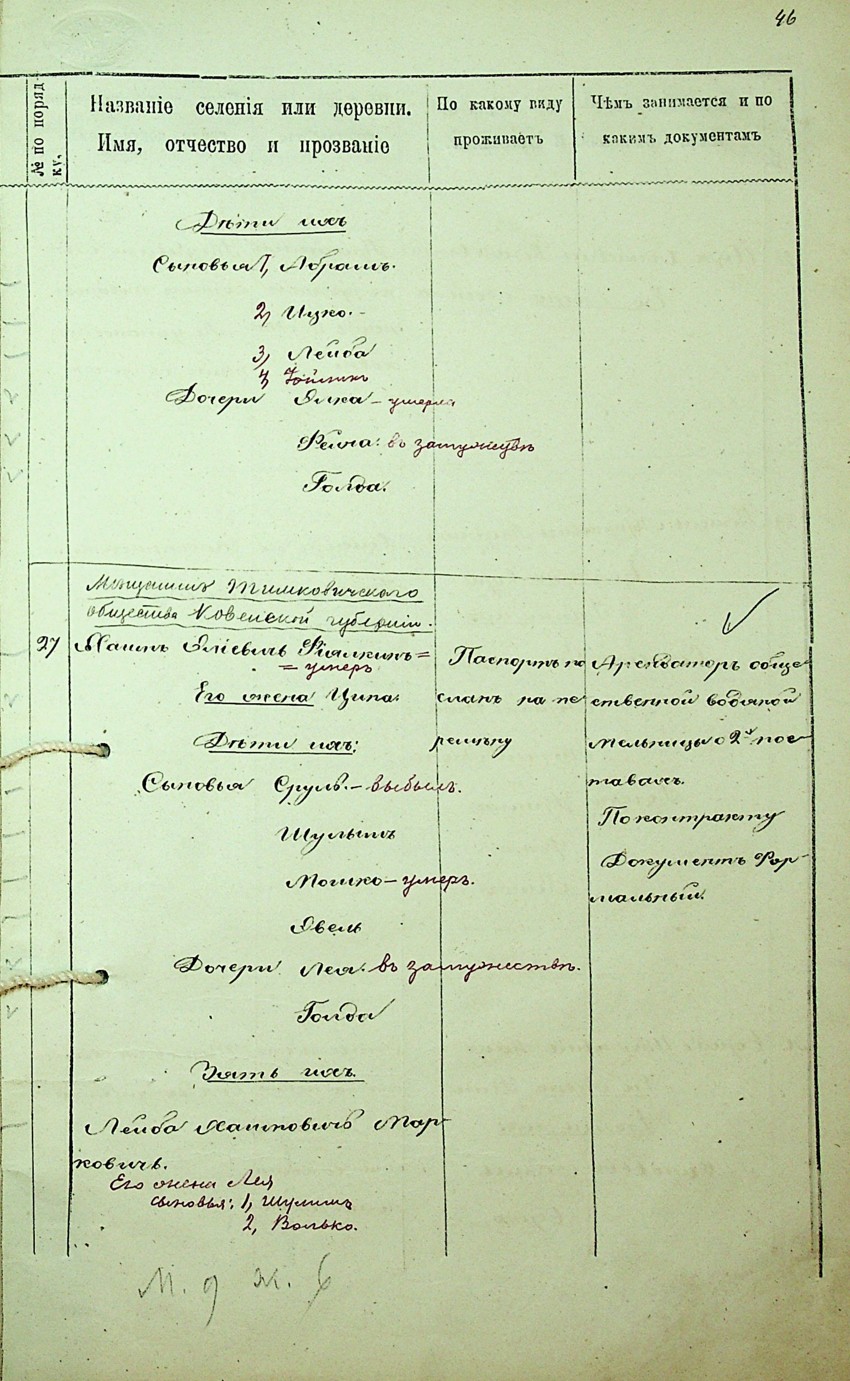 46
№ по поряд
ку.
Названіе селенія или деревни.
Имя, отчество и прозваніе
По какому виду
проживаетъ
Чѣмъ занимается и по
какимъ документамъ
Дѣти ихъ
Сыновья 1, Абрамъ.
2, Ицко.-
3, Лейба
4,
Дочери Элка - умерла
Фейга: въ замужествѣ
Голда.
Мѣщанинъ Тимковичского
общества Ковенской губерніи.
27
Хаимъ Эліевичъ Фіалкинъ =
= умеръ
Его жена Ципа.
Дѣти ихъ:
Сыновья Сруль. - выбылъ.
Шулымъ
Мошко - умеръ.
Эвель
Дочери Лея. въ замужествѣ.
Голда
Зять ихъ.
Лейба Хаимовичъ Мар-
ковичъ.
Его жена Лея
сыновья: 1, Шулимъ
2, Волько.
Паспортъ по
сланъ на пе
ремѣну
Арендаторъ обще
ственной водяной
мельницы о 2хъ пос-
тавахъ.
По контракту
Документъ Фор-
мальный.
М. 9 Ж. 6